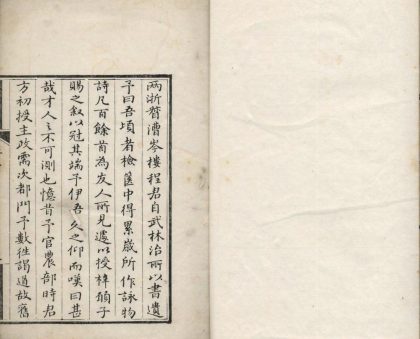 兩浙督漕岑樓程君自武林治所以書遺
予曰吾頃者檢匧中得累歲所作詠物
詩凡百餘首為友人所見遽以授梓願子
賜之叙以冠其端予伊吾久之仰而嘆曰甚
哉才人之不可測也憶昔予官農部時君
方初授主政需次都門予數往謁道故舊